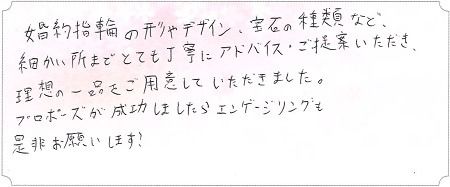 婚約指輪の形やデザイン、宝石の種類など、
細かい所までとても丁寧にアドバイス・ご提案いただき、
理想の一品をご用意していただきました。
プロポーズが成功しましたらエンゲージリングも
是非お願いします!